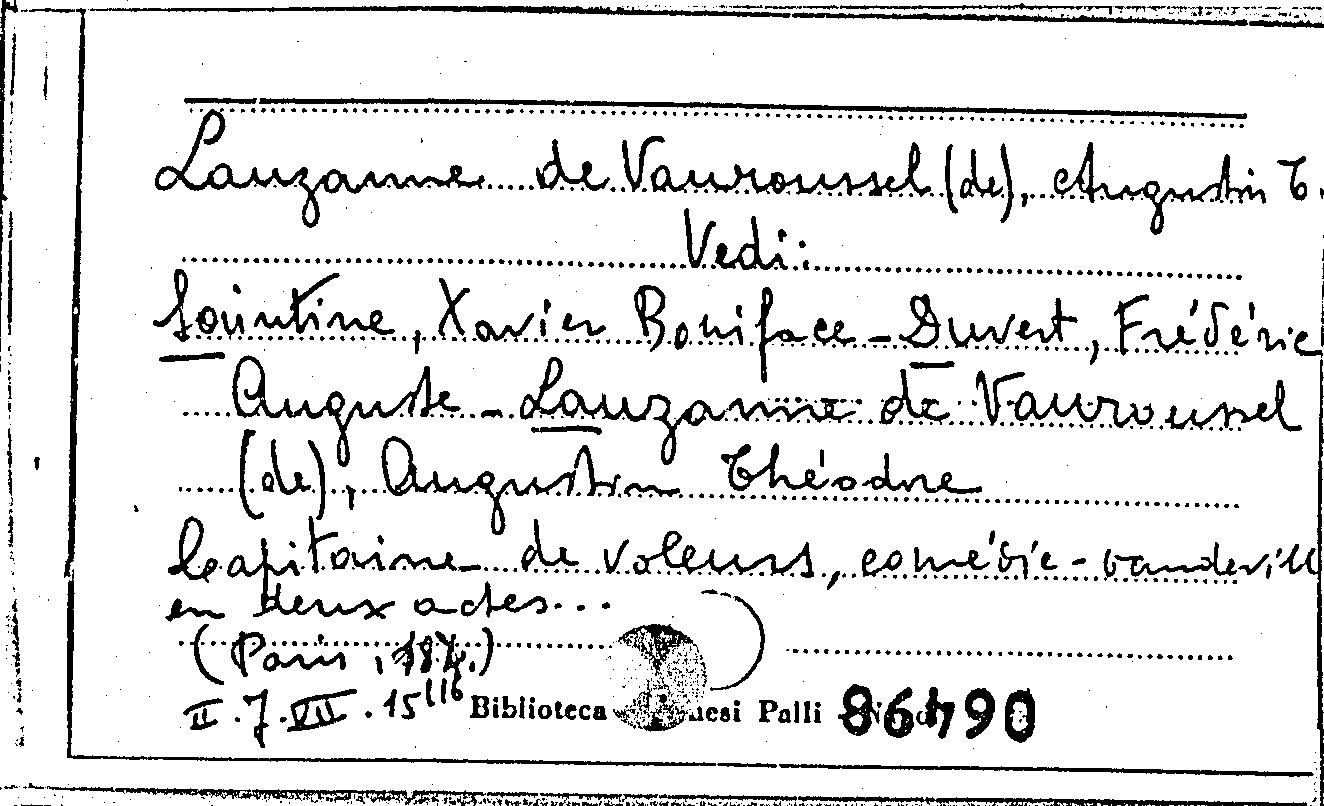 Lauzanne de Vauroussel (de), Augustin T.
Vedi:
Saintine, Xavier Boniface - Duvert, Frédéric
Auguste - Lauzanne de Vauroussel
(de), Augustin Théodore
Capitaine de voleurs, comédie-vaudevill
en deux actes...
(Paris,
II.7.VII.15 116 Biblioteca Palli 86490